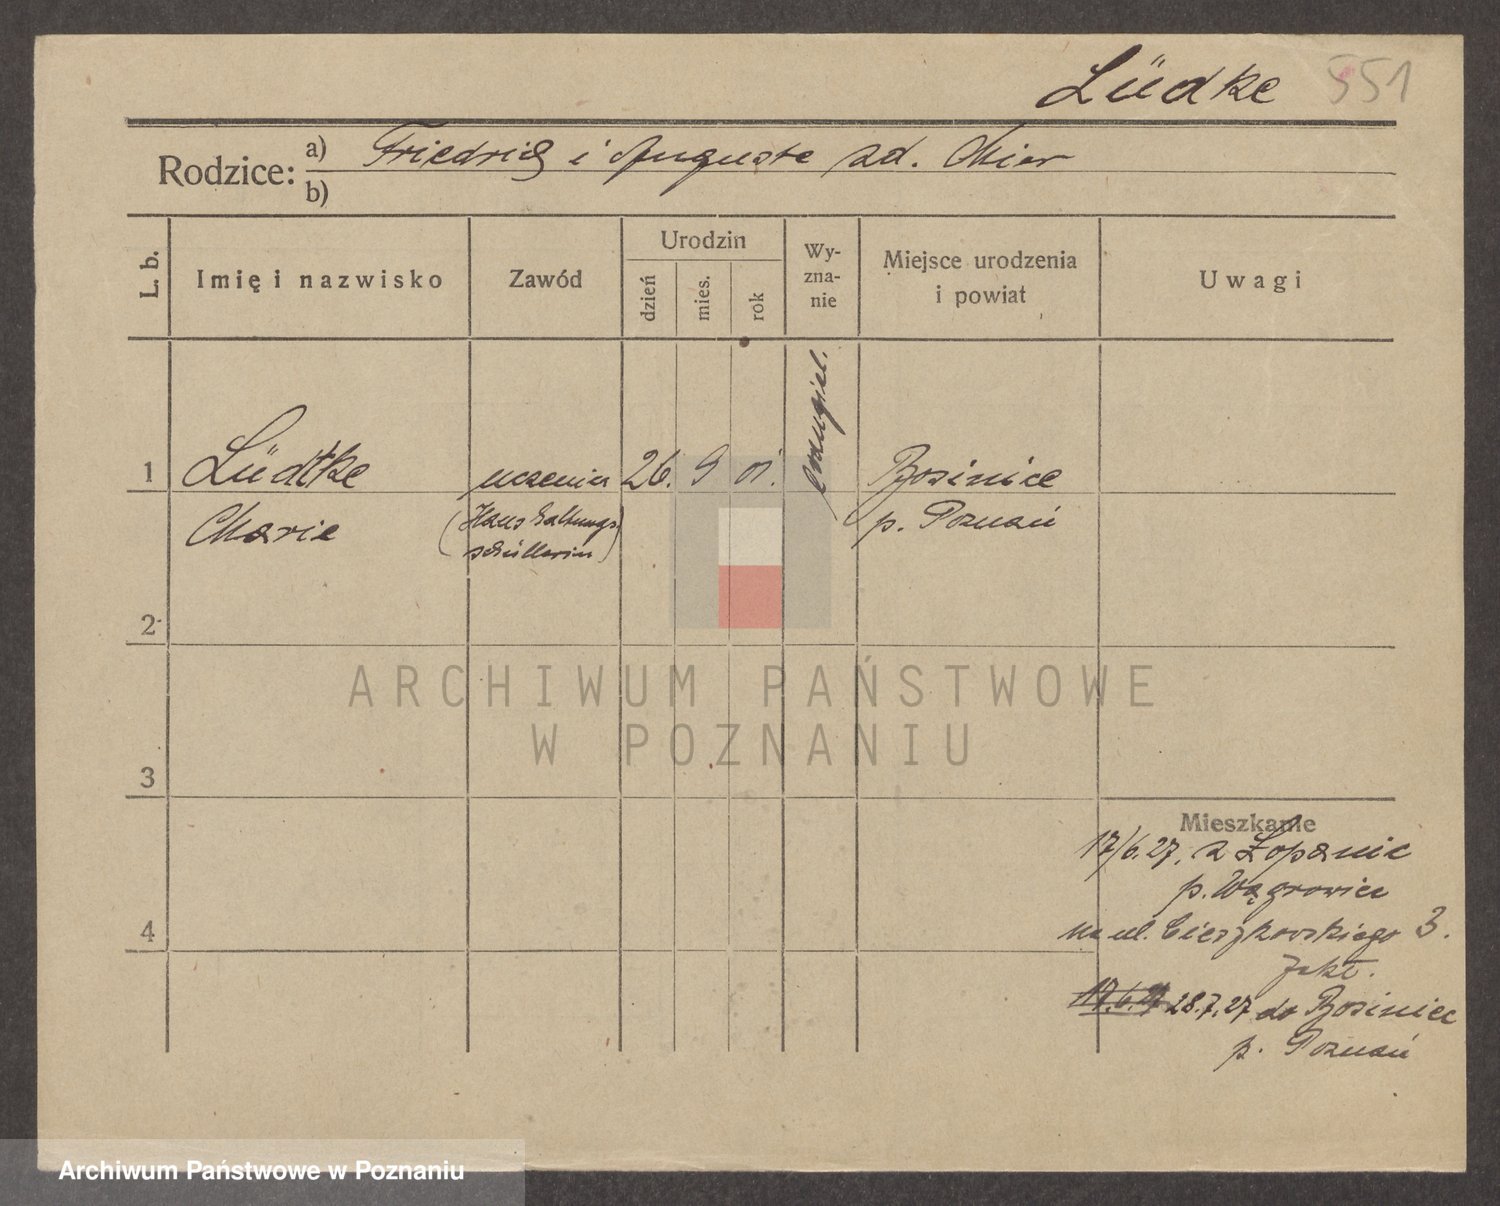 Lüdke 551
Rodzice: a) Friedrich i Auguste zd. Mier
b)
L. b.
Imię i nazwisko
Zawód
Urodzin
dzień
mies.
rok
Wy-
zna-
nie
Miejsce urodzenia
i powiat
Uwagi
1 Lüdtke uczenica 26. 9 01. ewangiel. Bosinice
Marie (Haushaltungs- p. Poznań
schüllerin)
2
3
4
Mieszkanie
17/6.27. z Łopienic
p. Wągrowiec
na ul. Cieszkowskiego 3.
zakł.
17.6.27 28.7.27 do Bosiniec
p. Poznań
ARCHIWUM PAŃSTWOWE
W POZNANIU
Archiwum Państwowe w Poznaniu